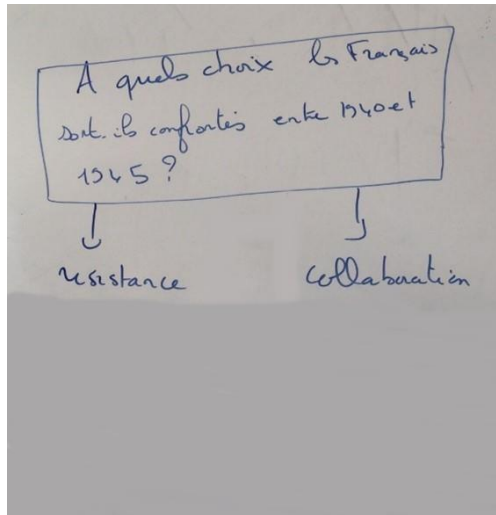 A quels choix les Français
sont-ils confrontés entre 1940 et
1945 ?
resistance
collaboration